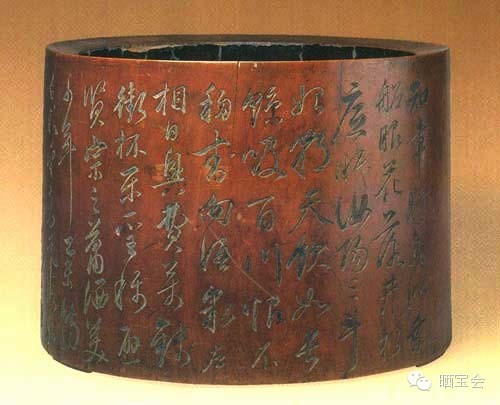 知章騎馬似乘
船眼花落井水
底眠汝陽三斗
始朝天飲如長
鯨吸百川恨不
移封向酒泉左
相日興費萬錢
銜杯樂聖稱避
賢宗之蕭洒美
少年 乙未
晒宝会